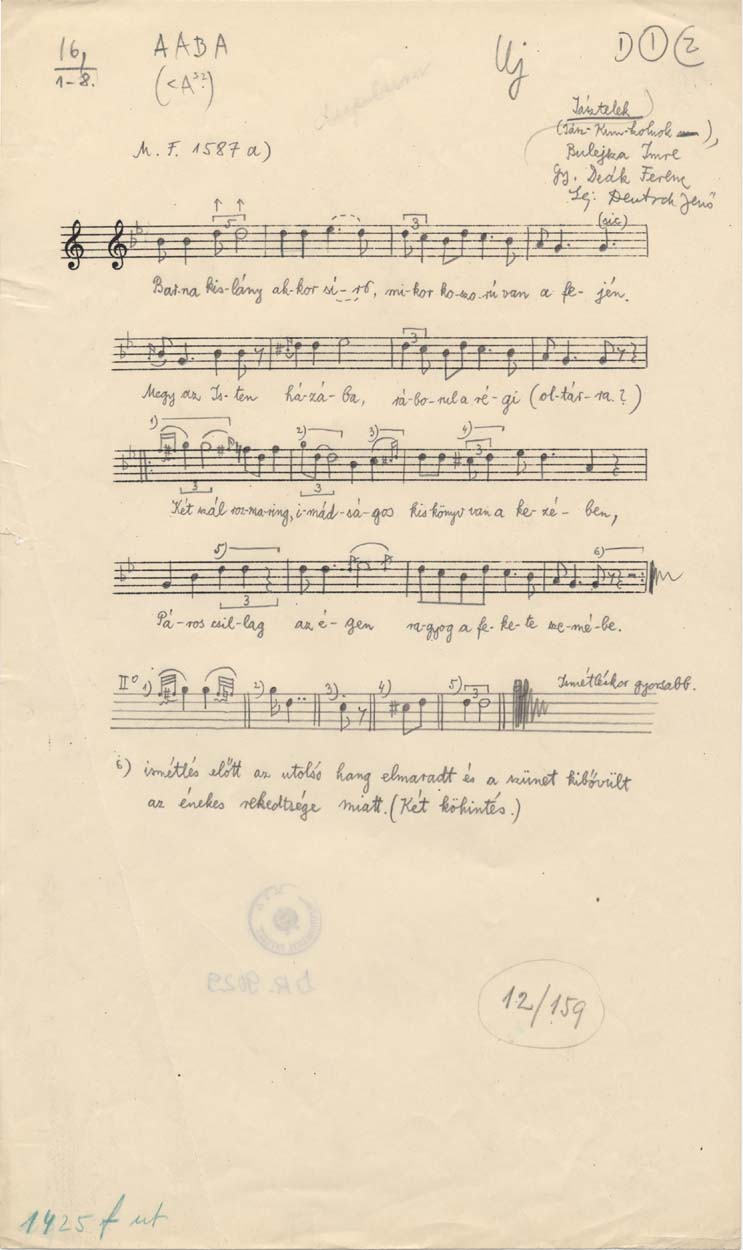 16,
1-8.
AABA
(<A⁵²)
Uj
D 1 2
M. F. 1587 a)
Jásztelek
(Jász-Kun-Kolnok),
Bulejsza Imre
Gy. Deák Ferenc
Lej: Deutsch Jenő
(sic)
5
3
Bar-na kis-lány ak-kor sí-ró, mi-kor ko-szo-rú van a fe-jén.
3
Megy az Is-ten há-zá-ba, rá-bo-rul a ré-gi (ol-tár-ra?)
1) 2) 3) 4)
3 3 3
Két szál roz-ma-ring, i-mád-sá-gos kis könyv van a ke-zé-ben,
5) 6)
3
Pá-ros csil-lag az é-gen ra-gyog a fe-ke-te sze-mé-be.
II° 1) 2) 3) 4) 5) 3 Ismétléskor gyorsabb.
6) ismétlés előtt az utolsó hang elmaradt és a szünet kibővült
az énekes rekedtsége miatt. (Két köhintés.)
BR. 9029
12/159
1425 f ut